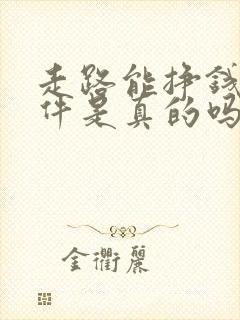 走路能挣钱
件是真的吗
金衢丽